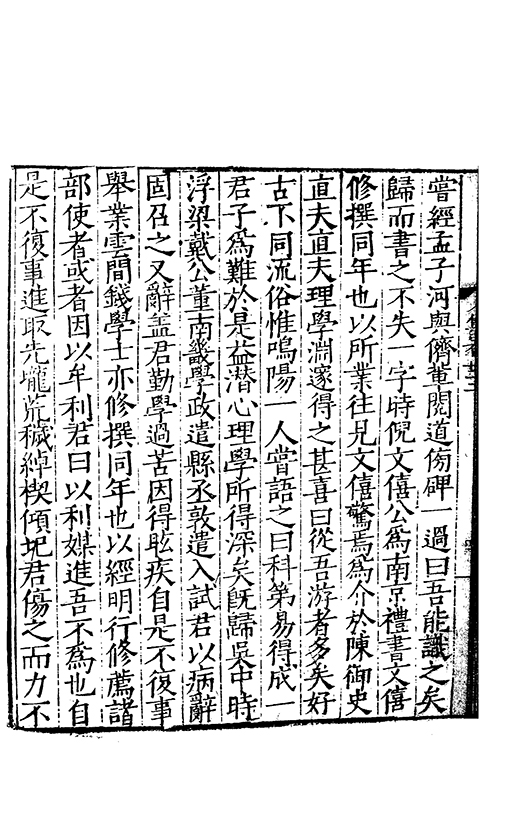 嘗經孟子河與儕輩閱道傍碑一過曰吾能識之矣
歸而書之不失一字時倪文僖公爲南京禮書文僖
修撰同年也以所業往見文僖驚焉爲介於陳御史
直夫直夫理學淵邃得之甚喜曰從吾游者多矣好
古不同流俗惟鳴陽一人嘗語之曰科第易得成一
君子爲難於是益潛心理學所得深矣旣歸吳中時
浮梁戴公董南畿學政遣縣丞敦遣入試君以病辭
固召之又辭盖君勤學過苦因得眩疾自是不復事
舉業雲間錢學士亦修撰同年也以經明行修薦諸
部使者或者因以牟利君曰以利媒進吾不爲也自
是不復事進取先壠荒穢綽楔傾圮君傷之而力不